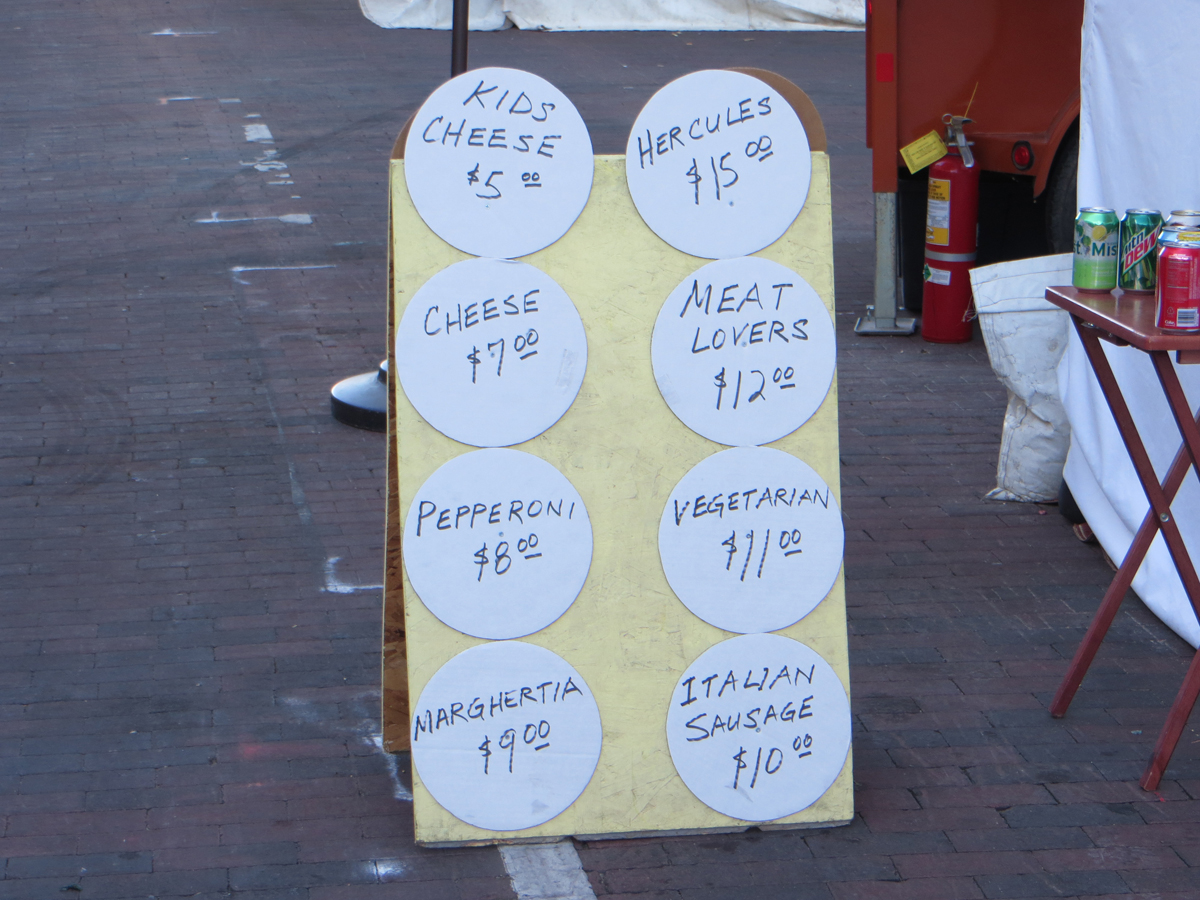 KIDS
CHEESE
$5.00
HERCULES
$15.00
CHEESE
$7.00
MEAT
LOVERS
$12.00
PEPPERONI
$8.00
VEGETARIAN
$11.00
MARGHERTIA
$9.00
ITALIAN
SAUSAGE
$10.00
Mis
DEW